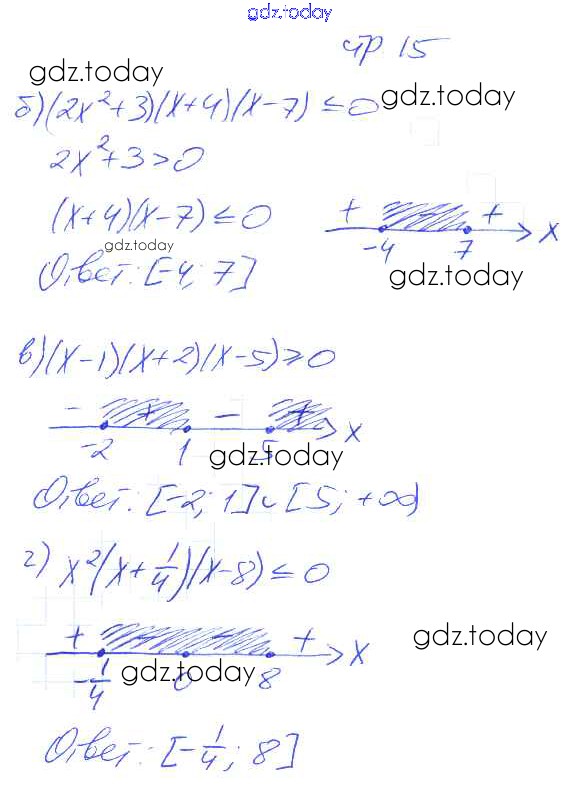 gdz.today
стр 15
gdz.today
б) (2x²+3)(x+4)(x-7) ≤ 0 gdz.today
2x²+3>0
(x+4)(x-7) ≤ 0
+ + x
-4 7
gdz.today
Ответ: [-4; 7] gdz.today
в) (x-1)(x+2)(x-5) ≥ 0
- + - + x
-2 1 5
gdz.today
Ответ: [-2; 1] ∪ [5; +∞)
г) x²(x+1/4)(x-8) ≤ 0
+ + x gdz.today
-1/4 0 8
gdz.today
Ответ: [-1/4; 8]